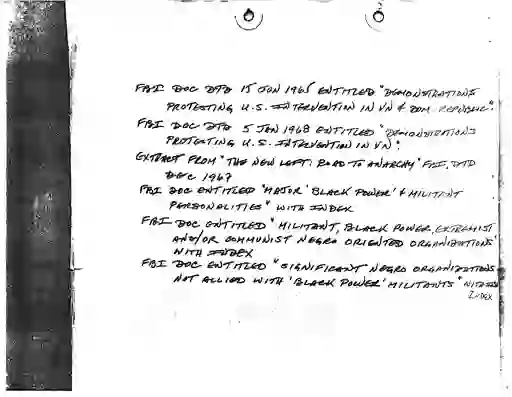 FBI DOC DTD 15 JUN 1965 ENTITLED "DEMONSTRATIONS
PROTESTING U.S. INTERVENTION IN VN & DOM. REPUBLIC".
FBI DOC DTD 5 JAN 1968 ENTITLED "DEMONSTRATIONS
PROTESTING U.S. INTERVENTION IN VN".
EXTRACT FROM "THE NEW LEFT: ROAD TO ANARCHY" FBI, DTD
DEC 1967
FBI DOC ENTITLED "MAJOR 'BLACK POWER' & MILITANT
PERSONALITIES" WITH INDEX
FBI DOC ENTITLED "MILITANT, BLACK POWER, EXTREMIST
AND/OR COMMUNIST NEGRO ORIENTED ORGANIZATIONS"
WITH INDEX
FBI DOC ENTITLED "SIGNIFICANT NEGRO ORGANIZATIONS
NOT ALLIED WITH 'BLACK POWER' MILITANTS" WITH
INDEX